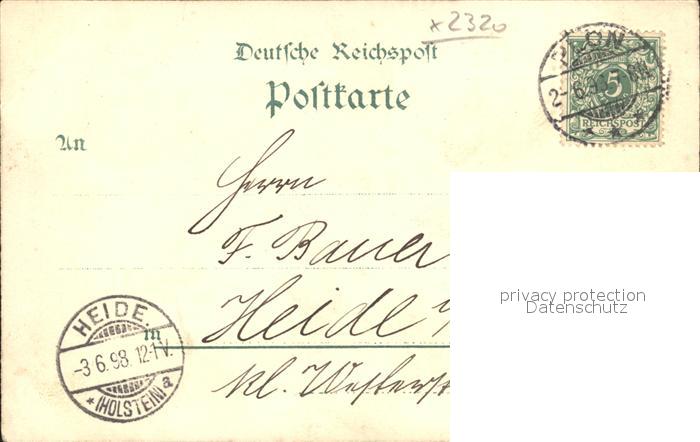 x2320
Deutsche Reichspost
Postkarte
5
REICHSPOST
2-6
An
Herrn
F. Bauer
Heide
in
kl. Westerst
privacy protection
Datenschutz
HEIDE
-3.6.98. 12-1 V.
* (HOLSTEIN) a